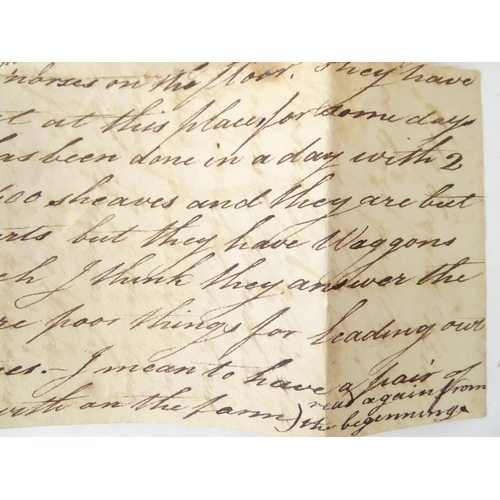 horses on the floor. They have
at this place, for some days
has been done in a day with 2
00 sheaves and they are but
rts but they have Waggons
ch I think they answer the
re poor things for leading our
es. - I mean to have a pair of
with on the farm) read again from
the beginning.